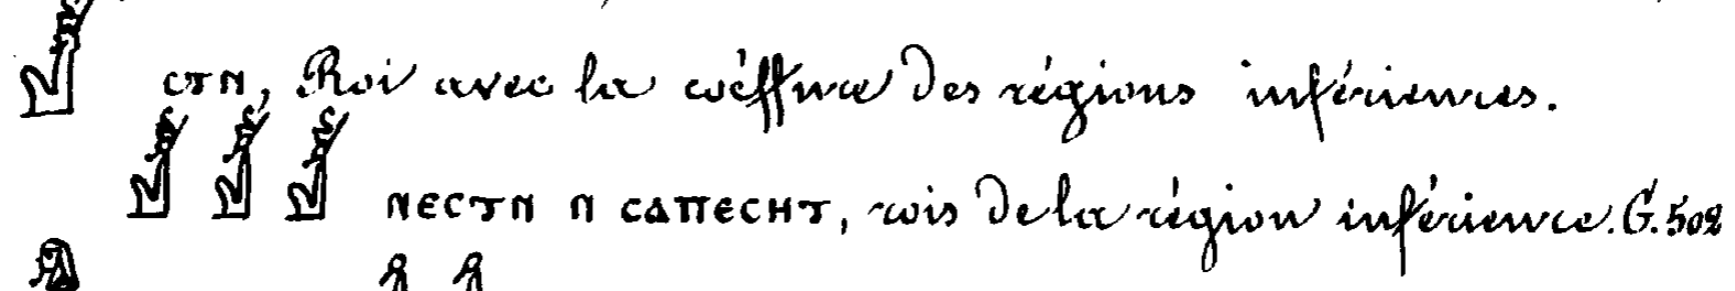 ⲥⲧⲛ, Roi avec la coëffure des régions inférieures.
ⲛⲉⲥⲧⲛ ⲛ ⲥⲁⲡⲉⲥⲏⲧ, rois de la région inférieure. G. 502